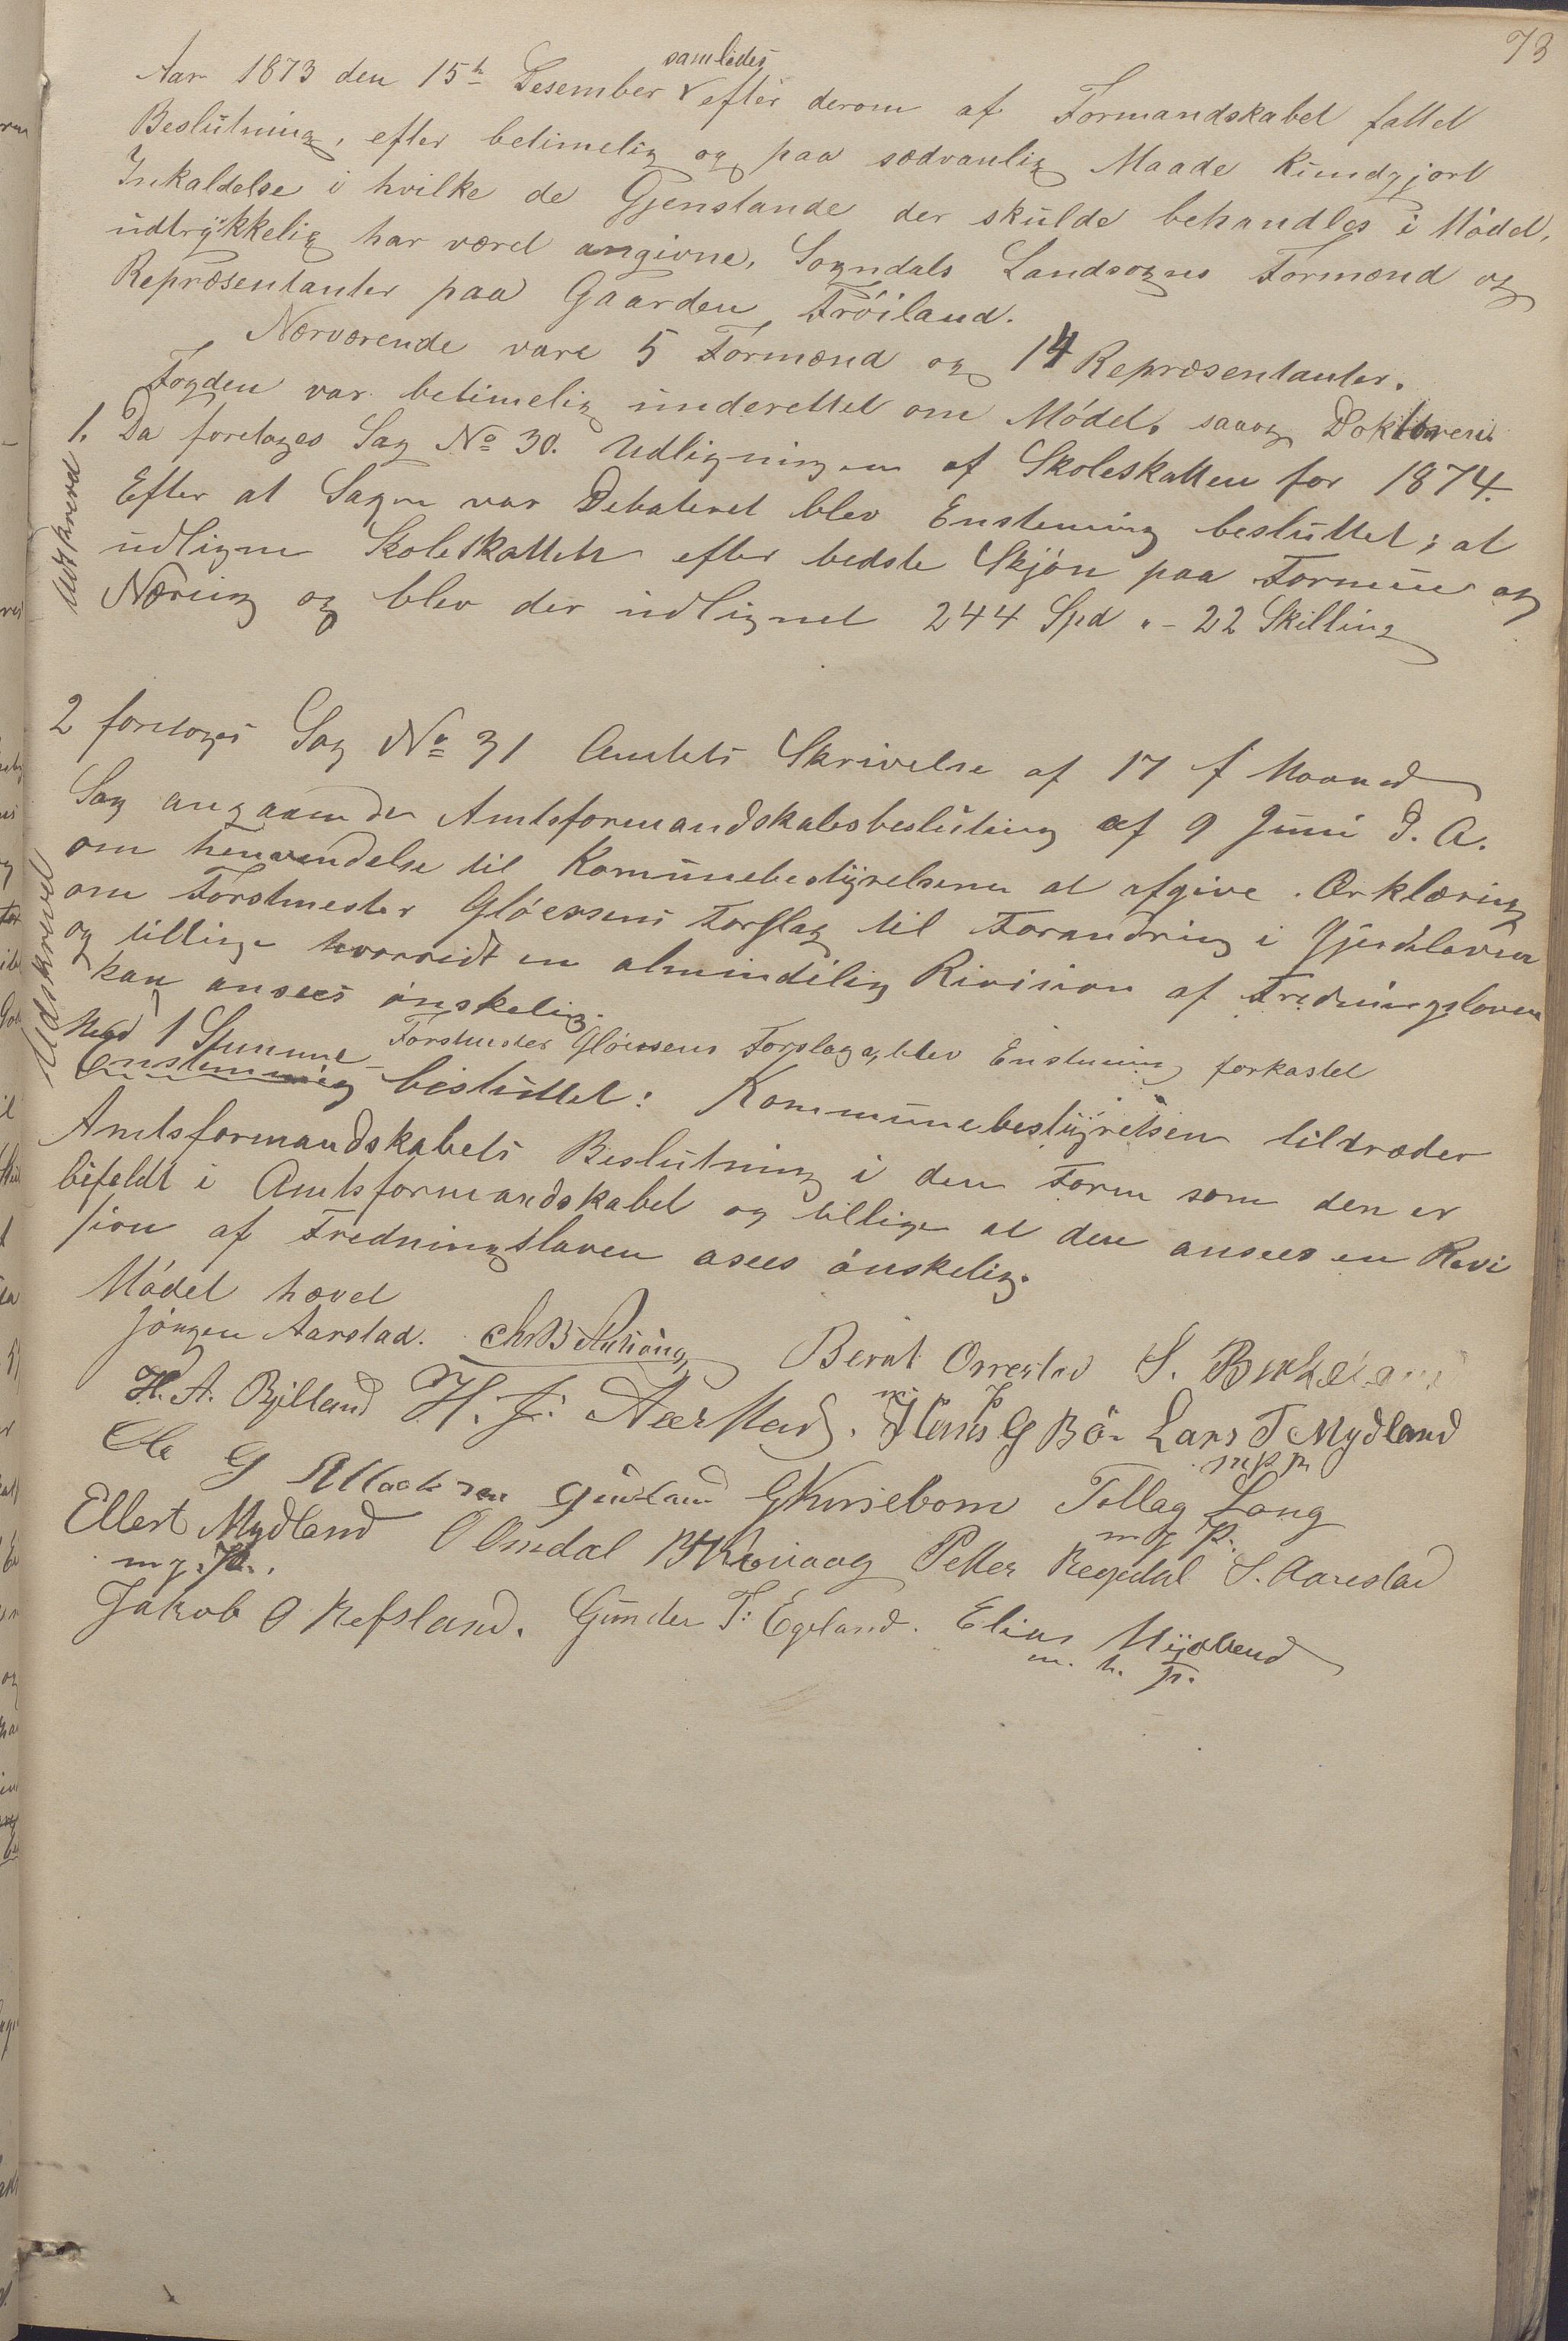 73
Aar 1873 den 15h Desember samledes efter derom af Formandskabet fattet
Beslutning, efter betimelig og paa sædvanlig Maade kundgjort
Inkaldelse i hvilke de Gjenstande der skulde behandles i Mödet,
udtrykkelig har været angivne, Sogndals Landsogns Formænd og
Repræsentanter paa Gaarden Fröiland.
Nærværende vare 5 Formænd og 14 Repræsentanter.
Fogden var betimelig underettet om Mödet, saaog Doktoren
1. Da foretoges Sag No 30. Udligningen af Skoleskatten for 1874.
Udskrevet
Efter at Sagen var Debateret blev Enstemig besluttet; at
udligne Skoleskatten efter bedste Skjön paa Formue og
Næring og blev der udlignet 244 Spd " - 22 Skilling
2 foretoges Sag No 31 Amtets Skrivelse af 17 f Maaned
Sag angaaende Amtsformandskabsbesluting af 9 Juni d. A.
om henvendelse til Komunebestyrelserne at afgive Erklæring
om Forstmester Glöersens Forslag til Forandring i Gjerdeloven
og tillige hvorvidt en almindelig Rivision af Fredningsloven
kan ansees önskelig.
Udskrevet
Forstmester Glöersens Forslag blev Enstemig forkastet
Med 1 Stemme
Enstemmig besluttet: Kommunebestyrelsen tiltræder
Amtsformandskabets Beslutning i den Form som den er
bifaldt i Amtsformandskabet og tillige at den ansees en Revi
sion af Fredningsloven asees önskelig.
Mödet hævet
Jörgen Aarstad. Berat Orrestad S. Birkeland
H. A. Bjelland H. J. Aarstad. Hans G Bö m. p Lars T Mydland
m p p
Ole G Gurland G Kursebom Tollag Long
m g P.
Ellert Mydland O Omdal Petter Regedal S. Aarestad
m. g. P.
Jakob O Refsland. Gunder T: Egeland. Elias Mydland
m. h. P.